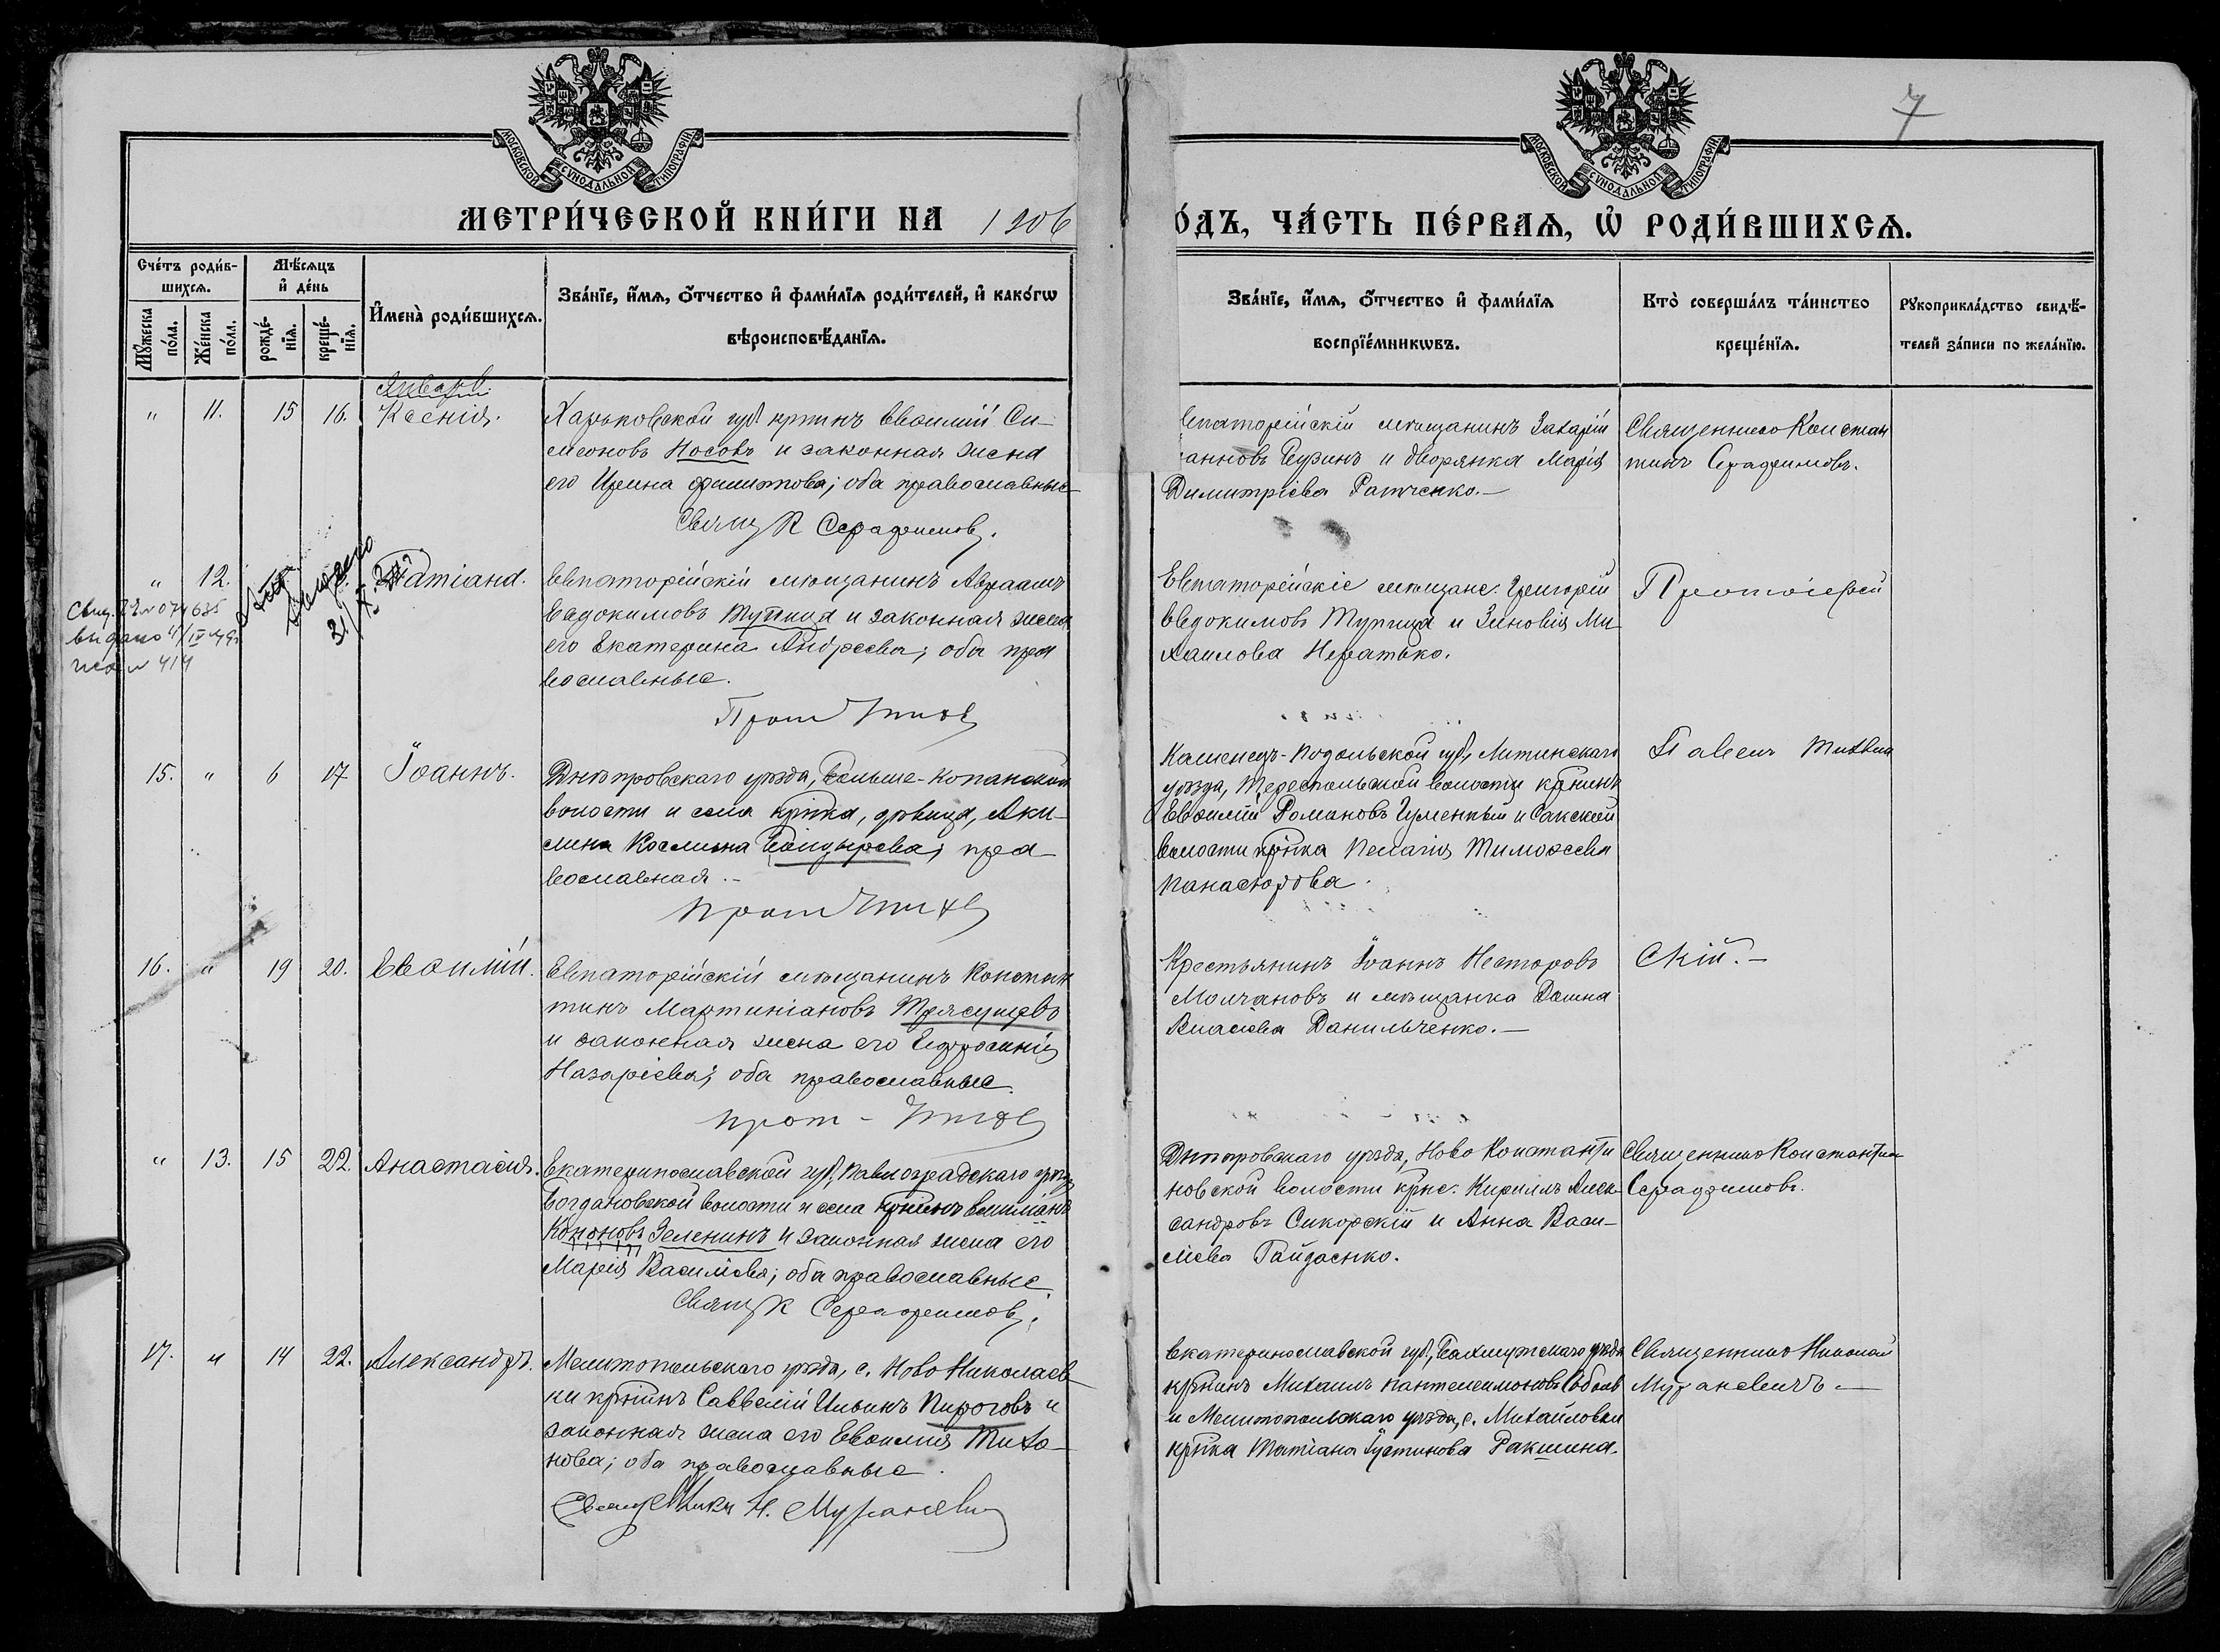 7
МОСКОВСКОЙ СѴНОДАЛЬНОЙ ТИПОГРАФІИ
МОСКОВСКОЙ СѴНОДАЛЬНОЙ ТИПОГРАФІИ
МЕТРИ́ЧЕСКОЙ КНИ́ГИ НА 1906
О́ДЪ, ЧА́СТЬ ПЕ́РВАѦ, Ѽ РОДИ́ВШИХСѦ.
Сче́тъ роди́в-
шихсѧ.
Мѣ́сѧцъ
и҆ де́нь
Мꙋ́жеска
по́ла.
Же́нска
по́ла.
рожде́-
нїѧ.
креще́-
нїѧ.
И҆мена̀ роди́вшихсѧ.
Зва́нїе, и҆́мѧ, ѻ҆́тчество и҆ фами́лїѧ роди́телей, и҆ како́гѡ
вѣроисповѣ́данїѧ.
Зва́нїе, и҆́мѧ, ѻ҆́тчество и҆ фами́лїѧ
воспрїе́мникѡвъ.
Кто̀ соверша́лъ та́инство
креще́нїѧ.
Рꙋкоприкла́дство свидѣ́-
телей за́писи по жела́нїю.
Январь.
" 11. 15 16. Ксенія.
Харьковской губ. крнинъ Евѳимій Си-
меоновъ Носовъ и законная жена
его Ирина Филиппова; оба православные
Свящ К Серафимовъ.
Евпаторійскій мѣщанинъ Захарій
анновъ и дворянка Марія
Димитріева Ратченко.—
Священникъ Констан
тинъ Серафимовъ.
" 12. Татіана.
выдано
Евпаторійскій мѣщанинъ Авраамъ
Евдокимовъ Тупица и законная жена
его Екатерина Андреева; оба пра
вославные.
Прот
Евпаторійскіе мѣщане: Григорій
Евдокимовъ Тупица и Зиновія Ми
хаилова Нератько.
Протоіерей
15. " 6 17 Іоаннъ.
Днѣпровскаго уѣзда, Больше-Копанской
волости и села крнка, дѣвица, Аки-
лина Космина; пра-
вославная.-
прот
Каменецъ-Подольской губ., Литинскаго
уѣзда, волости крнинъ
Евѳимій Романовъ и Сакской
волости крнка Пелагія Тимоѳеева
Павелъ
16. " 19 20. Евѳимій.
Евпаторійскій мѣщанинъ Констан
тинъ Мартиніановъ
и законная жена его Евфросинія
Назаріева; оба православные.
прот -
Крестьянинъ Іоаннъ Несторовъ
Молчановъ и мѣщанка Домна
Власіева Данильченко.—
скій.—
" 13. 15 22. Анастасія.
Екатеринославской губ., Павлоградскаго уѣзда
Богдановской волости и села крнинъ
Кононовъ Зеленинъ и законная жена его
Марія Василіева; оба православные
Свящ К Серафимовъ.
Днѣпровскаго уѣзда, Ново Константи
новской волости крне. Кириллъ Алек-
сандровъ Сикорскій и Анна Васи-
ліева Гайдаенко.
Священникъ Константинъ
Серафимовъ.
17. " 14 22. Александръ.
Мелитопольскаго уѣзда, с. Ново Николаев
ки крнинъ Савватій Ильинъ Пироговъ и
законная жена его Евѳимія Тихо-
нова; оба православные.
Священникъ Н. Мураневич
Екатеринославской губ., Бахмутскаго уѣзда
крнинъ Михаилъ Пантелеимоновъ
и Мелитопольскаго уѣзда, с. Михайловки
крнка Татіана Іустинова Ракшина.
Священникъ Николай
Мураневичъ.—